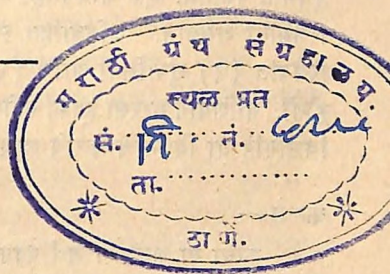 मराठी ग्रंथ संग्रहालय.
स्थळ प्रत
सं. नं.
ता.
ठाणे.